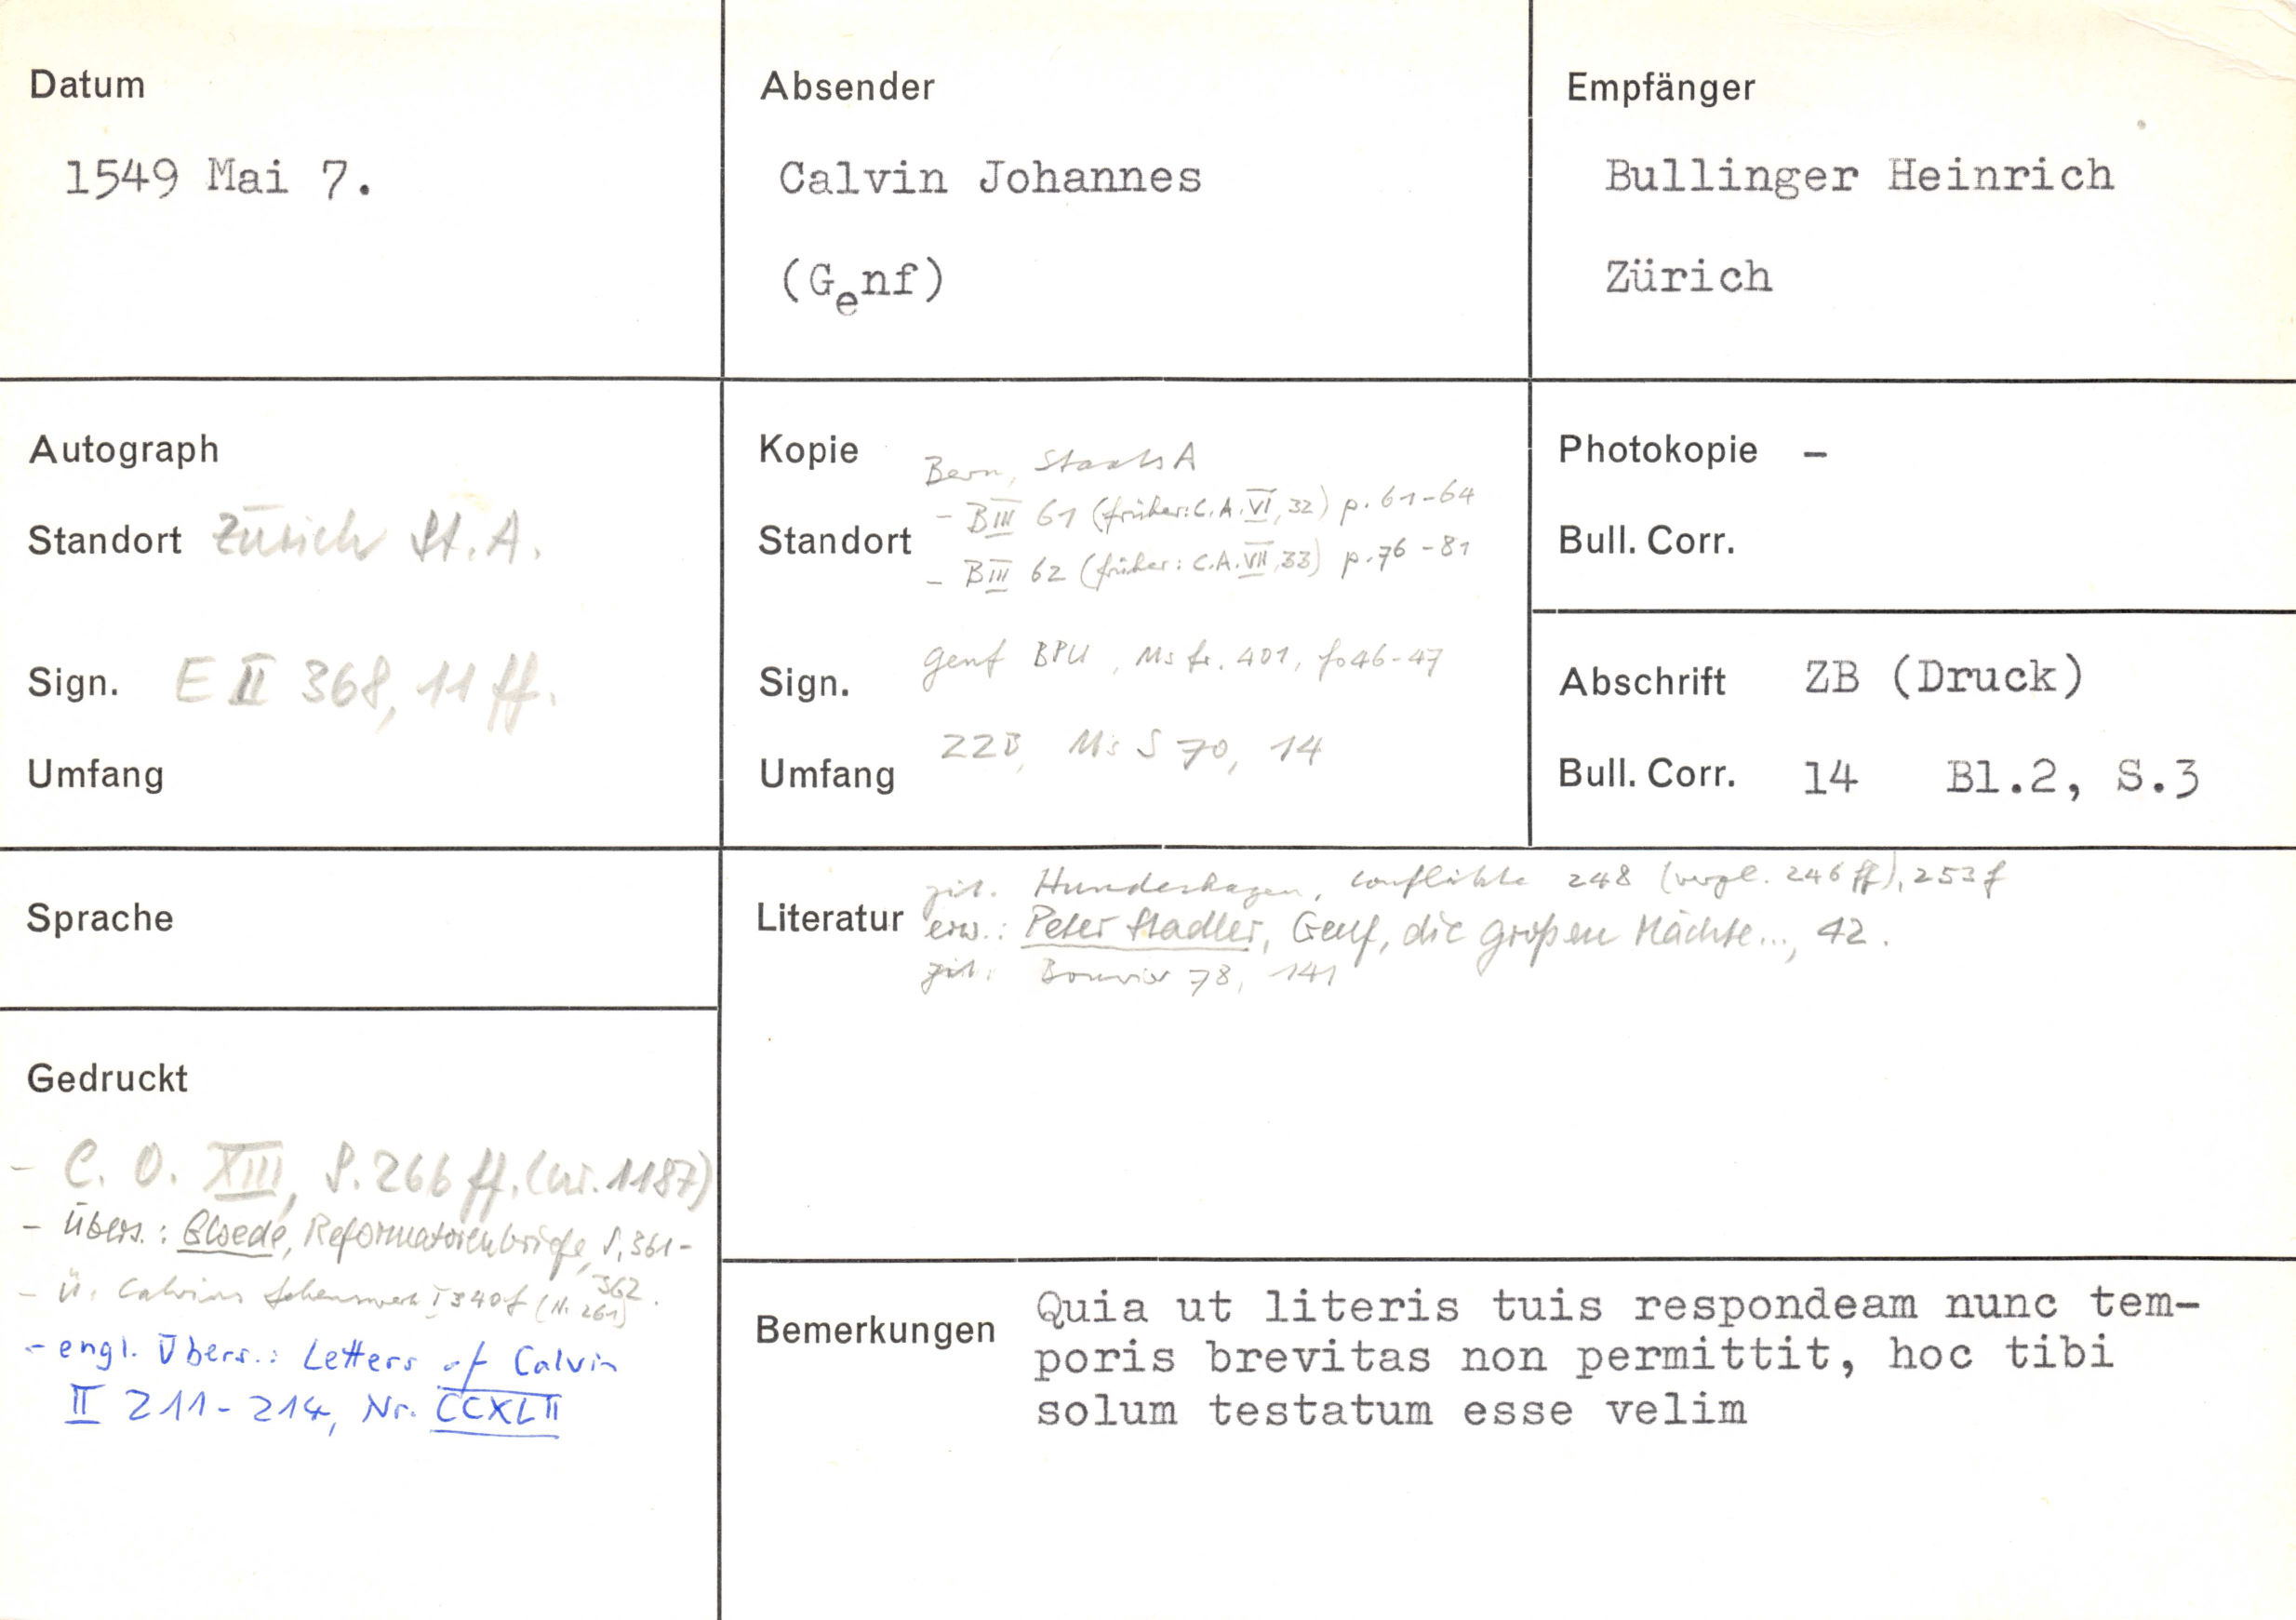 Datum
1549 Mai 7.
Absender
Calvin Johannes
(Genf)
Empfänger
Bullinger Heinrich
Zürich
Autograph
Standort Zürich St.A.
Sign. E II 368, 11 ff.
Umfang
Kopie
Bern, StaatsA
Standort
- B III 61 (früher: C.A. VI, 32) p. 61-64
- B III 62 (früher: C.A. VII, 33) p. 76-81
Sign.
Genf BPU, Ms fr. 401, fo 46-47
Umfang
ZZB, Ms S 70, 14
Photokopie -
Bull. Corr.
Abschrift ZB (Druck)
Bull. Corr. 14 Bl.2, S.3
Sprache
Literatur
zit. Hundeshagen, Conflikte 248 (vergl. 246 ff), 253 f
erw.: Peter Stadler, Genf, die großen Mächte..., 42.
zit. Bouvier 78, 141
Gedruckt
- C. O. XIII, S. 266 ff. (Nr. 1187)
- Übers.: Gloede, Reformatorenbriefe, S. 361-
362.
- Ü. Calvins Lebenswerk I 340 f (N. 261)
- engl. Übers.: Letters of Calvin
II 211-214, Nr. CCXLII
Bemerkungen
Quia ut literis tuis respondeam nunc tem-
poris brevitas non permittit, hoc tibi
solum testatum esse velim